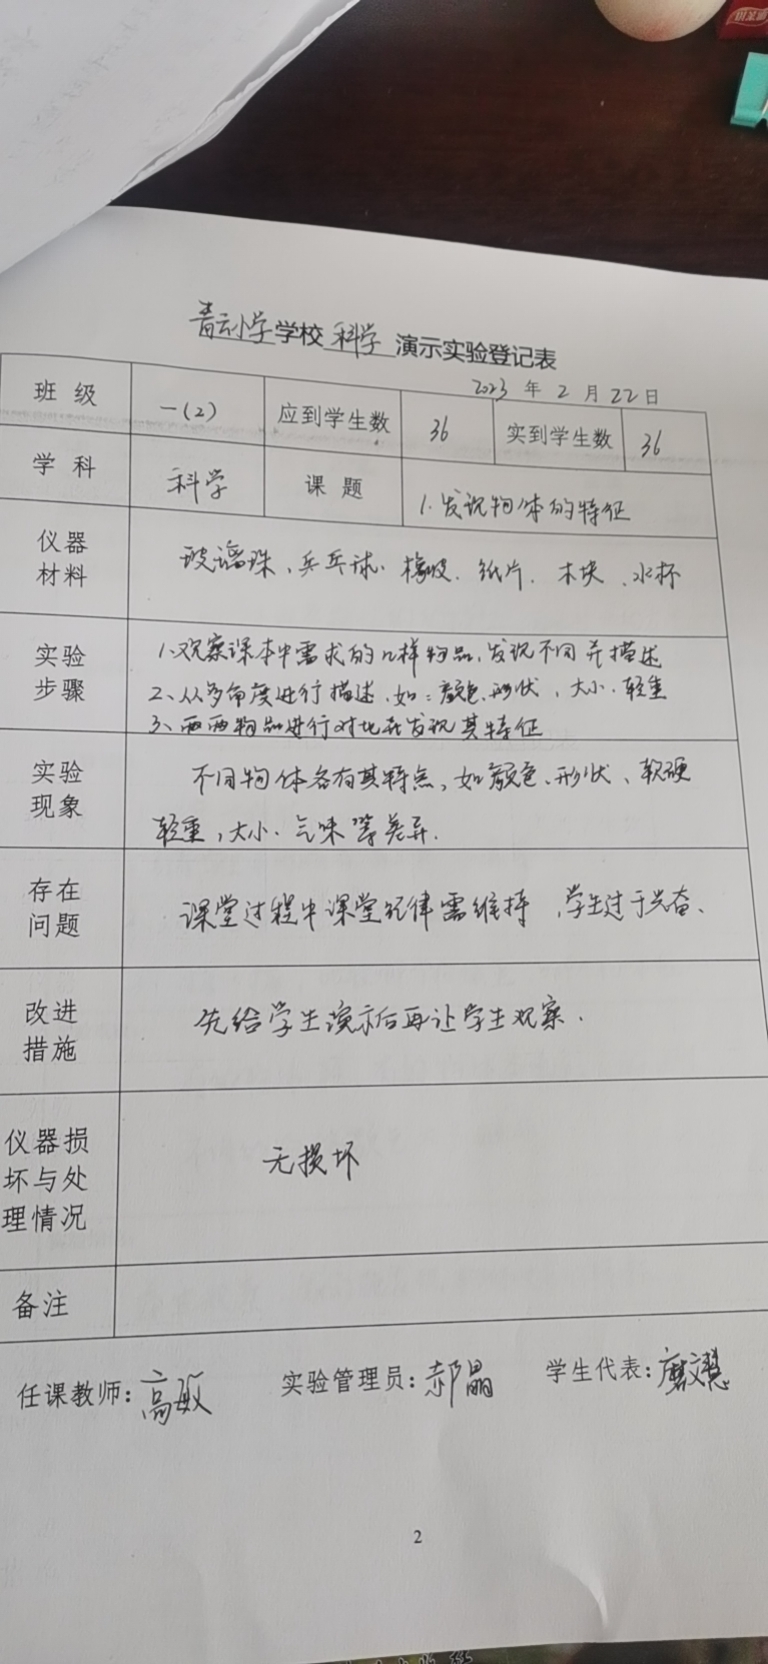 青云小学学校 科学 演示实验登记表
2023 年 2 月 22 日
班级 一(2) 应到学生数 36 实到学生数 36
学科 科学 课题 1.发现物体的特征
仪器
材料
玻璃珠、乒乓球、橡皮、纸片、木块、水杯
实验
步骤
1、观察课本中需求的几样物品,发现不同并描述
2、从多角度进行描述,如:颜色、形状、大小、轻重
3、两两物品进行对比再发现其特征
实验
现象
不同物体各有其特点,如颜色、形状、软硬
轻重,大小、气味等差异.
存在
问题
课堂过程中课堂纪律需维持,学生过于兴奋、
改进
措施
先给学生演示后再让学生观察.
仪器损
坏与处
理情况
无损坏
备注
任课教师:高敏 实验管理员:郝晶 学生代表:文慧
2